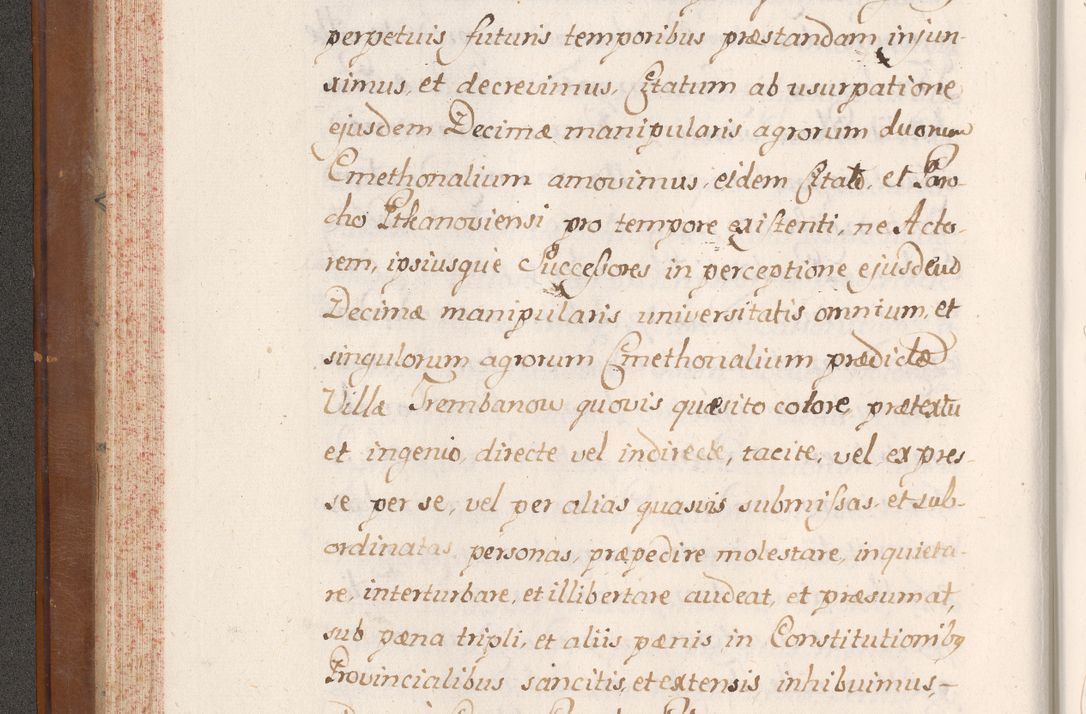 perpetuis futuris temporibus præstandam injun-
ximus, et decrevimus, Citatum ab usurpatione
ejusdem Decimæ manipularis agrorum duorum
Cmethonalium amovimus, eidem Citato, et Paro-
cho Pthanoviensi pro tempore existenti, ne Acto-
rem, ipsiusque Successores in perceptione ejusdem
Decimæ manipularis universitatis omnium, et
singulorum agrorum Cmethonalium prædictæ
Villæ Trembanow quovis quæsito colore, prætextu
et ingenio, directe vel indirecte, tacite, vel expres-
se per se, vel per alias quasvis submissas, et sub-
ordinatas personas, præpedire molestare, inquieta-
re, interturbare, et illibertare audeat, et præsumat,
sub pæna tripli, et aliis pænis in Constitutionibus
Provincialibus sancitis, et extensis, inhibuimus,-